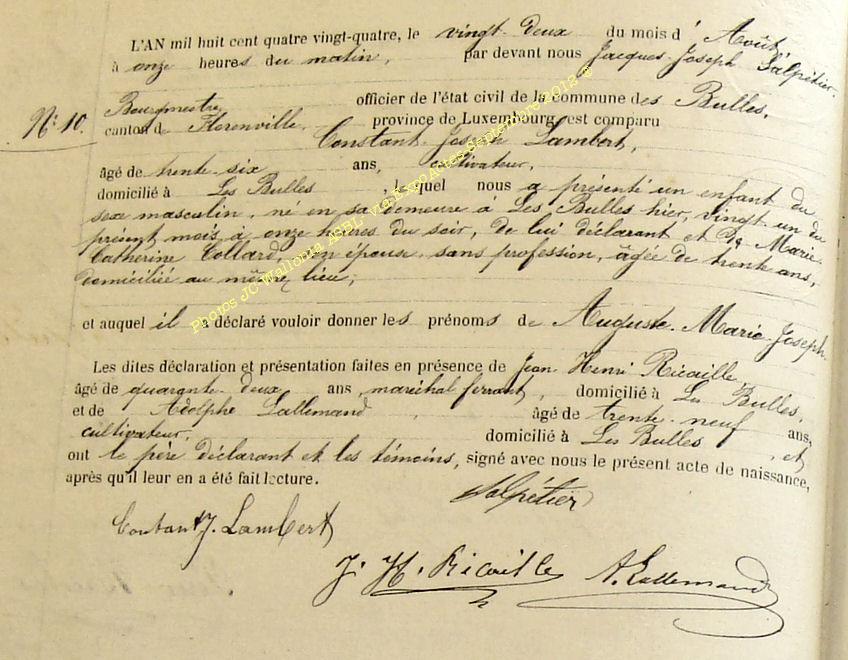 L'AN mil huit cent quatre vingt-quatre, le vingt-deux du mois d' Août,
à onze heures du matin, par devant nous Jacques-Joseph Salpétier
Bourgmestre officier de l'état civil de la commune des Bulles,
N° 10. canton de Florenville, province de Luxembourg, est comparu
Constant-Joseph Lambert,
âgé de trente-six ans, cultivateur,
domicilié à Les Bulles, lequel nous a présenté un enfant du
sexe masculin, né en sa demeure à Les Bulles hier, vingt un du
présent mois à onze heures du soir, de lui déclarant et de Marie-
Catherine Collard, son épouse, sans profession, âgée de trente ans,
domiciliée au même lieu;
et auquel il a déclaré vouloir donner les prénoms de Auguste-Marie-Joseph.
Les dites déclaration et présentation faites en présence de Jean-Henri Ricaille,
âgé de quarante-deux ans, maréchal ferrant, domicilié à Les Bulles,
et de Adolphe Lallemand, âgé de trente-neuf ans,
cultivateur, domicilié à Les Bulles, et
ont le père déclarant et les témoins, signé avec nous le présent acte de naissance,
après qu'il leur en a été fait lecture.
Salpétier
J. Lambert
J. H. Ricaille A. Lallemand
Photos JC Wallonia ASBL via ExpoActes Septembre 2012 ©